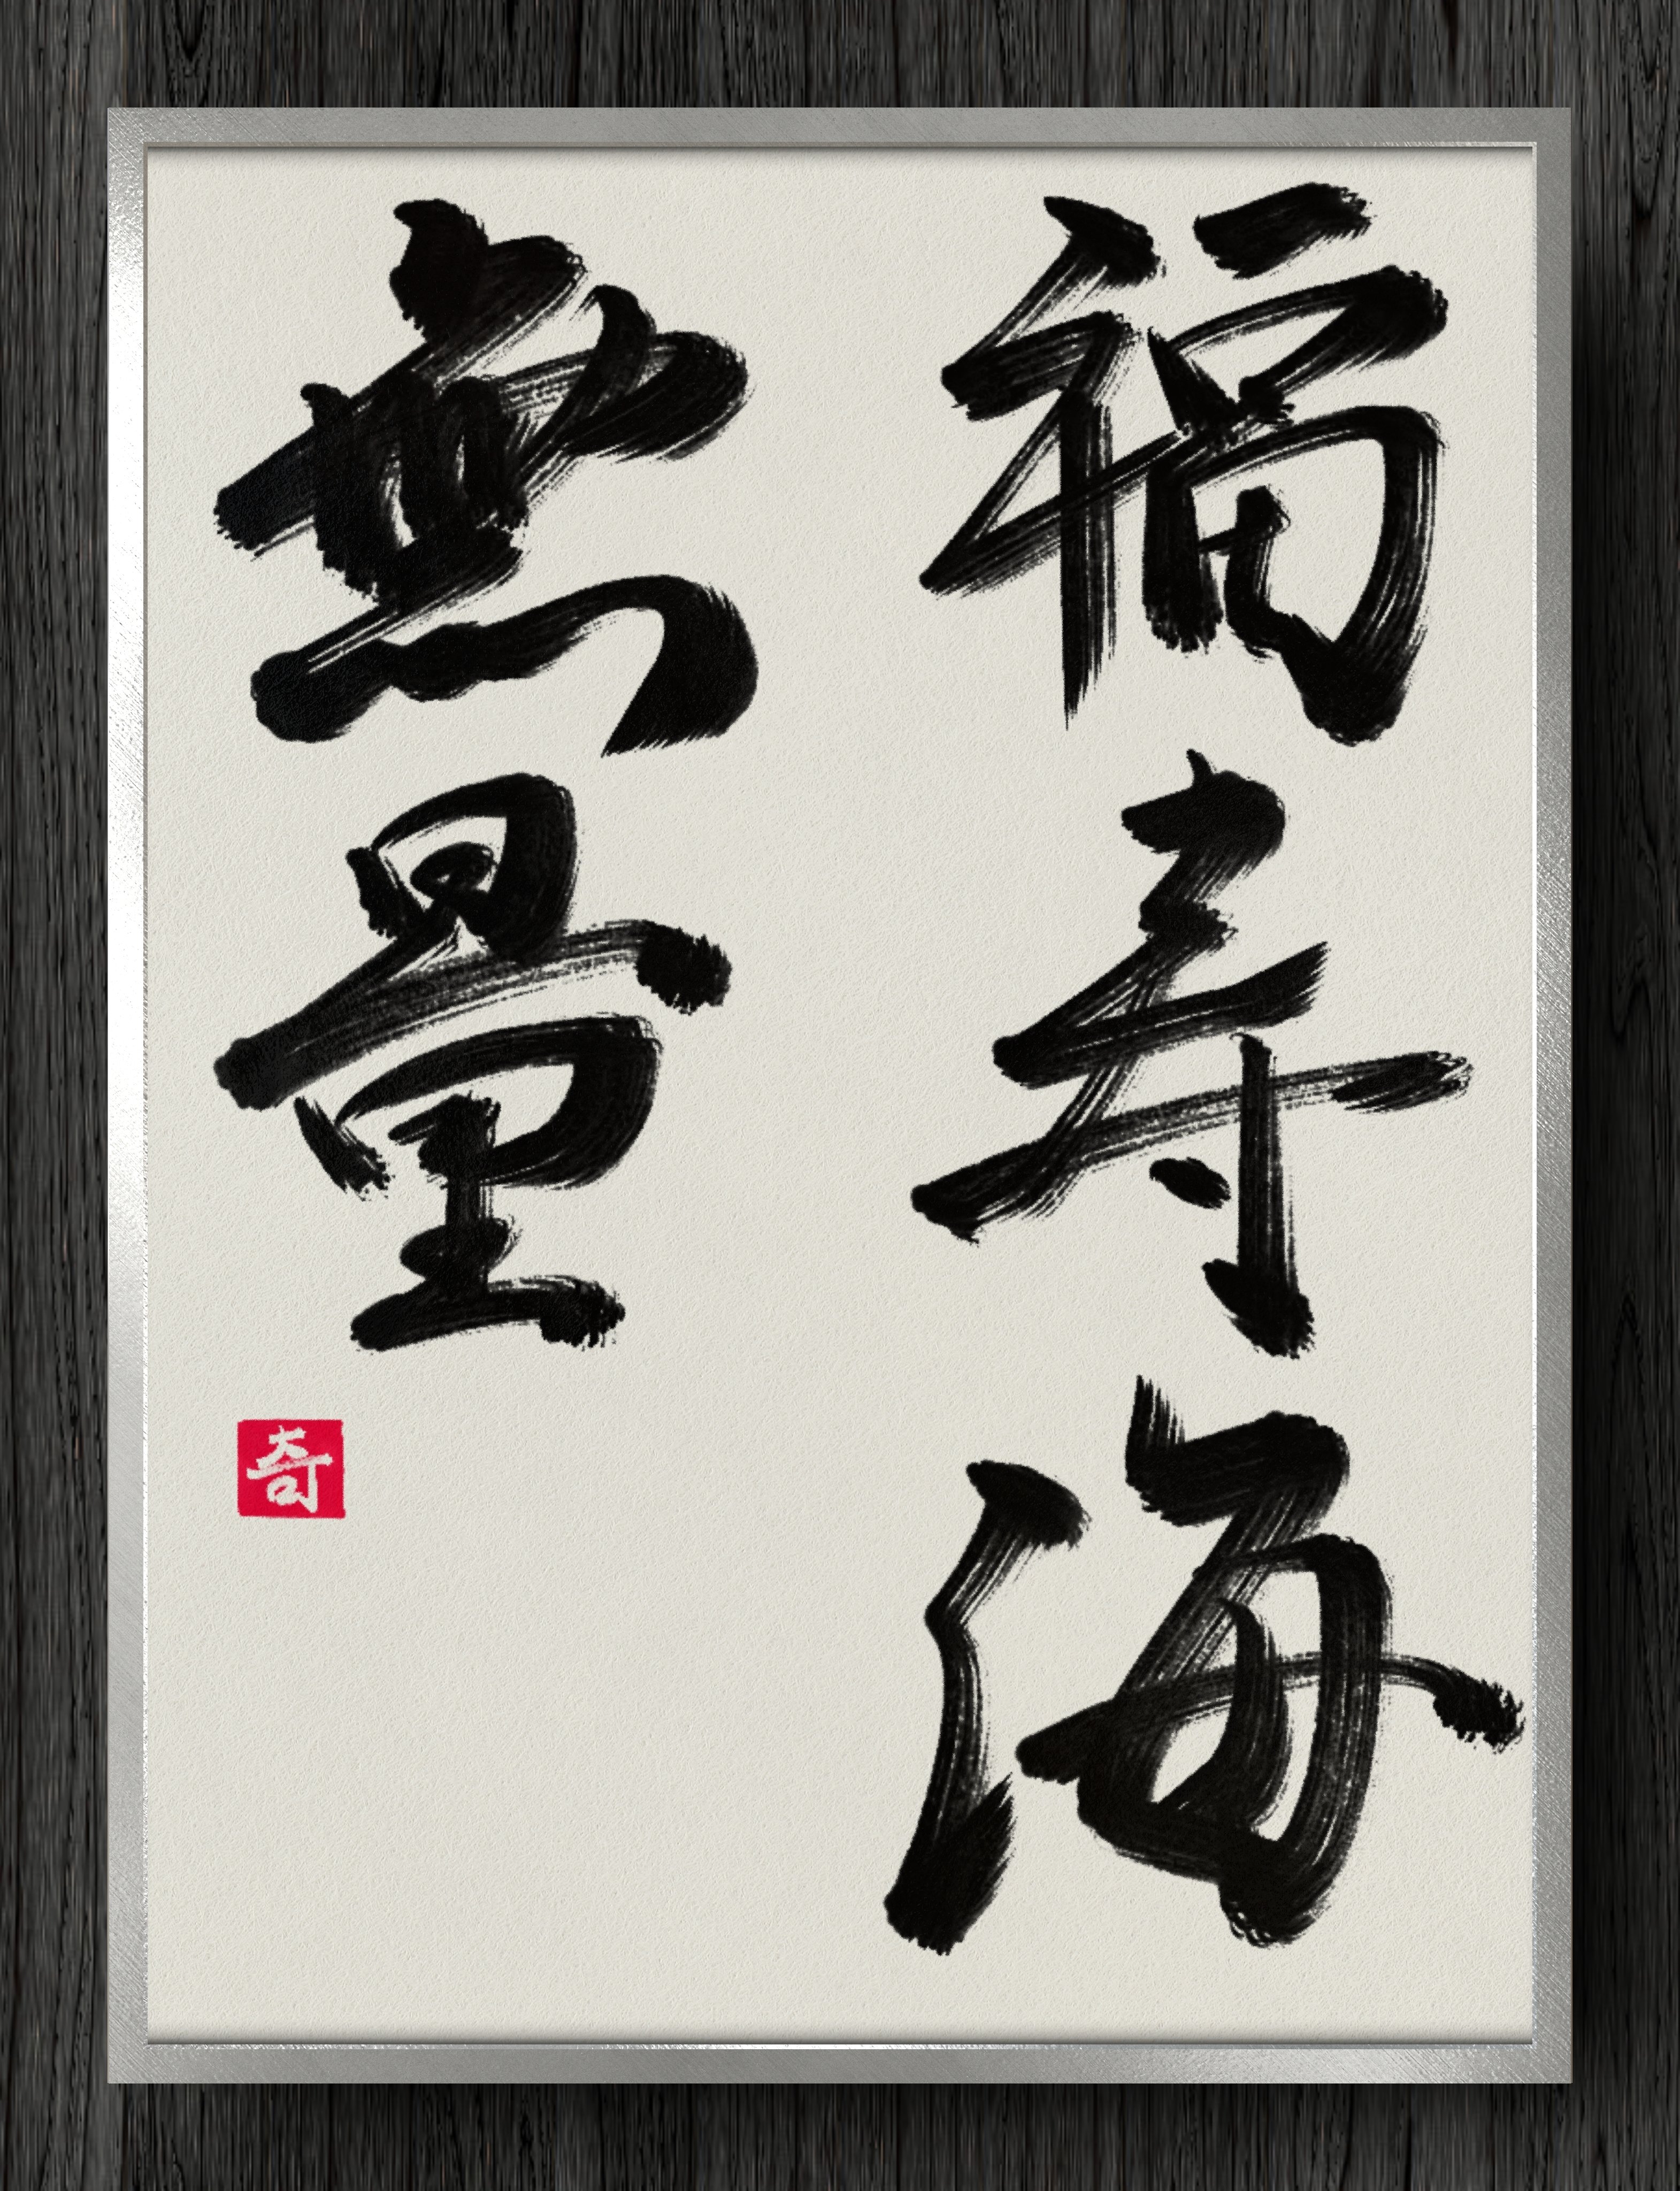 福寿海
無量
奇